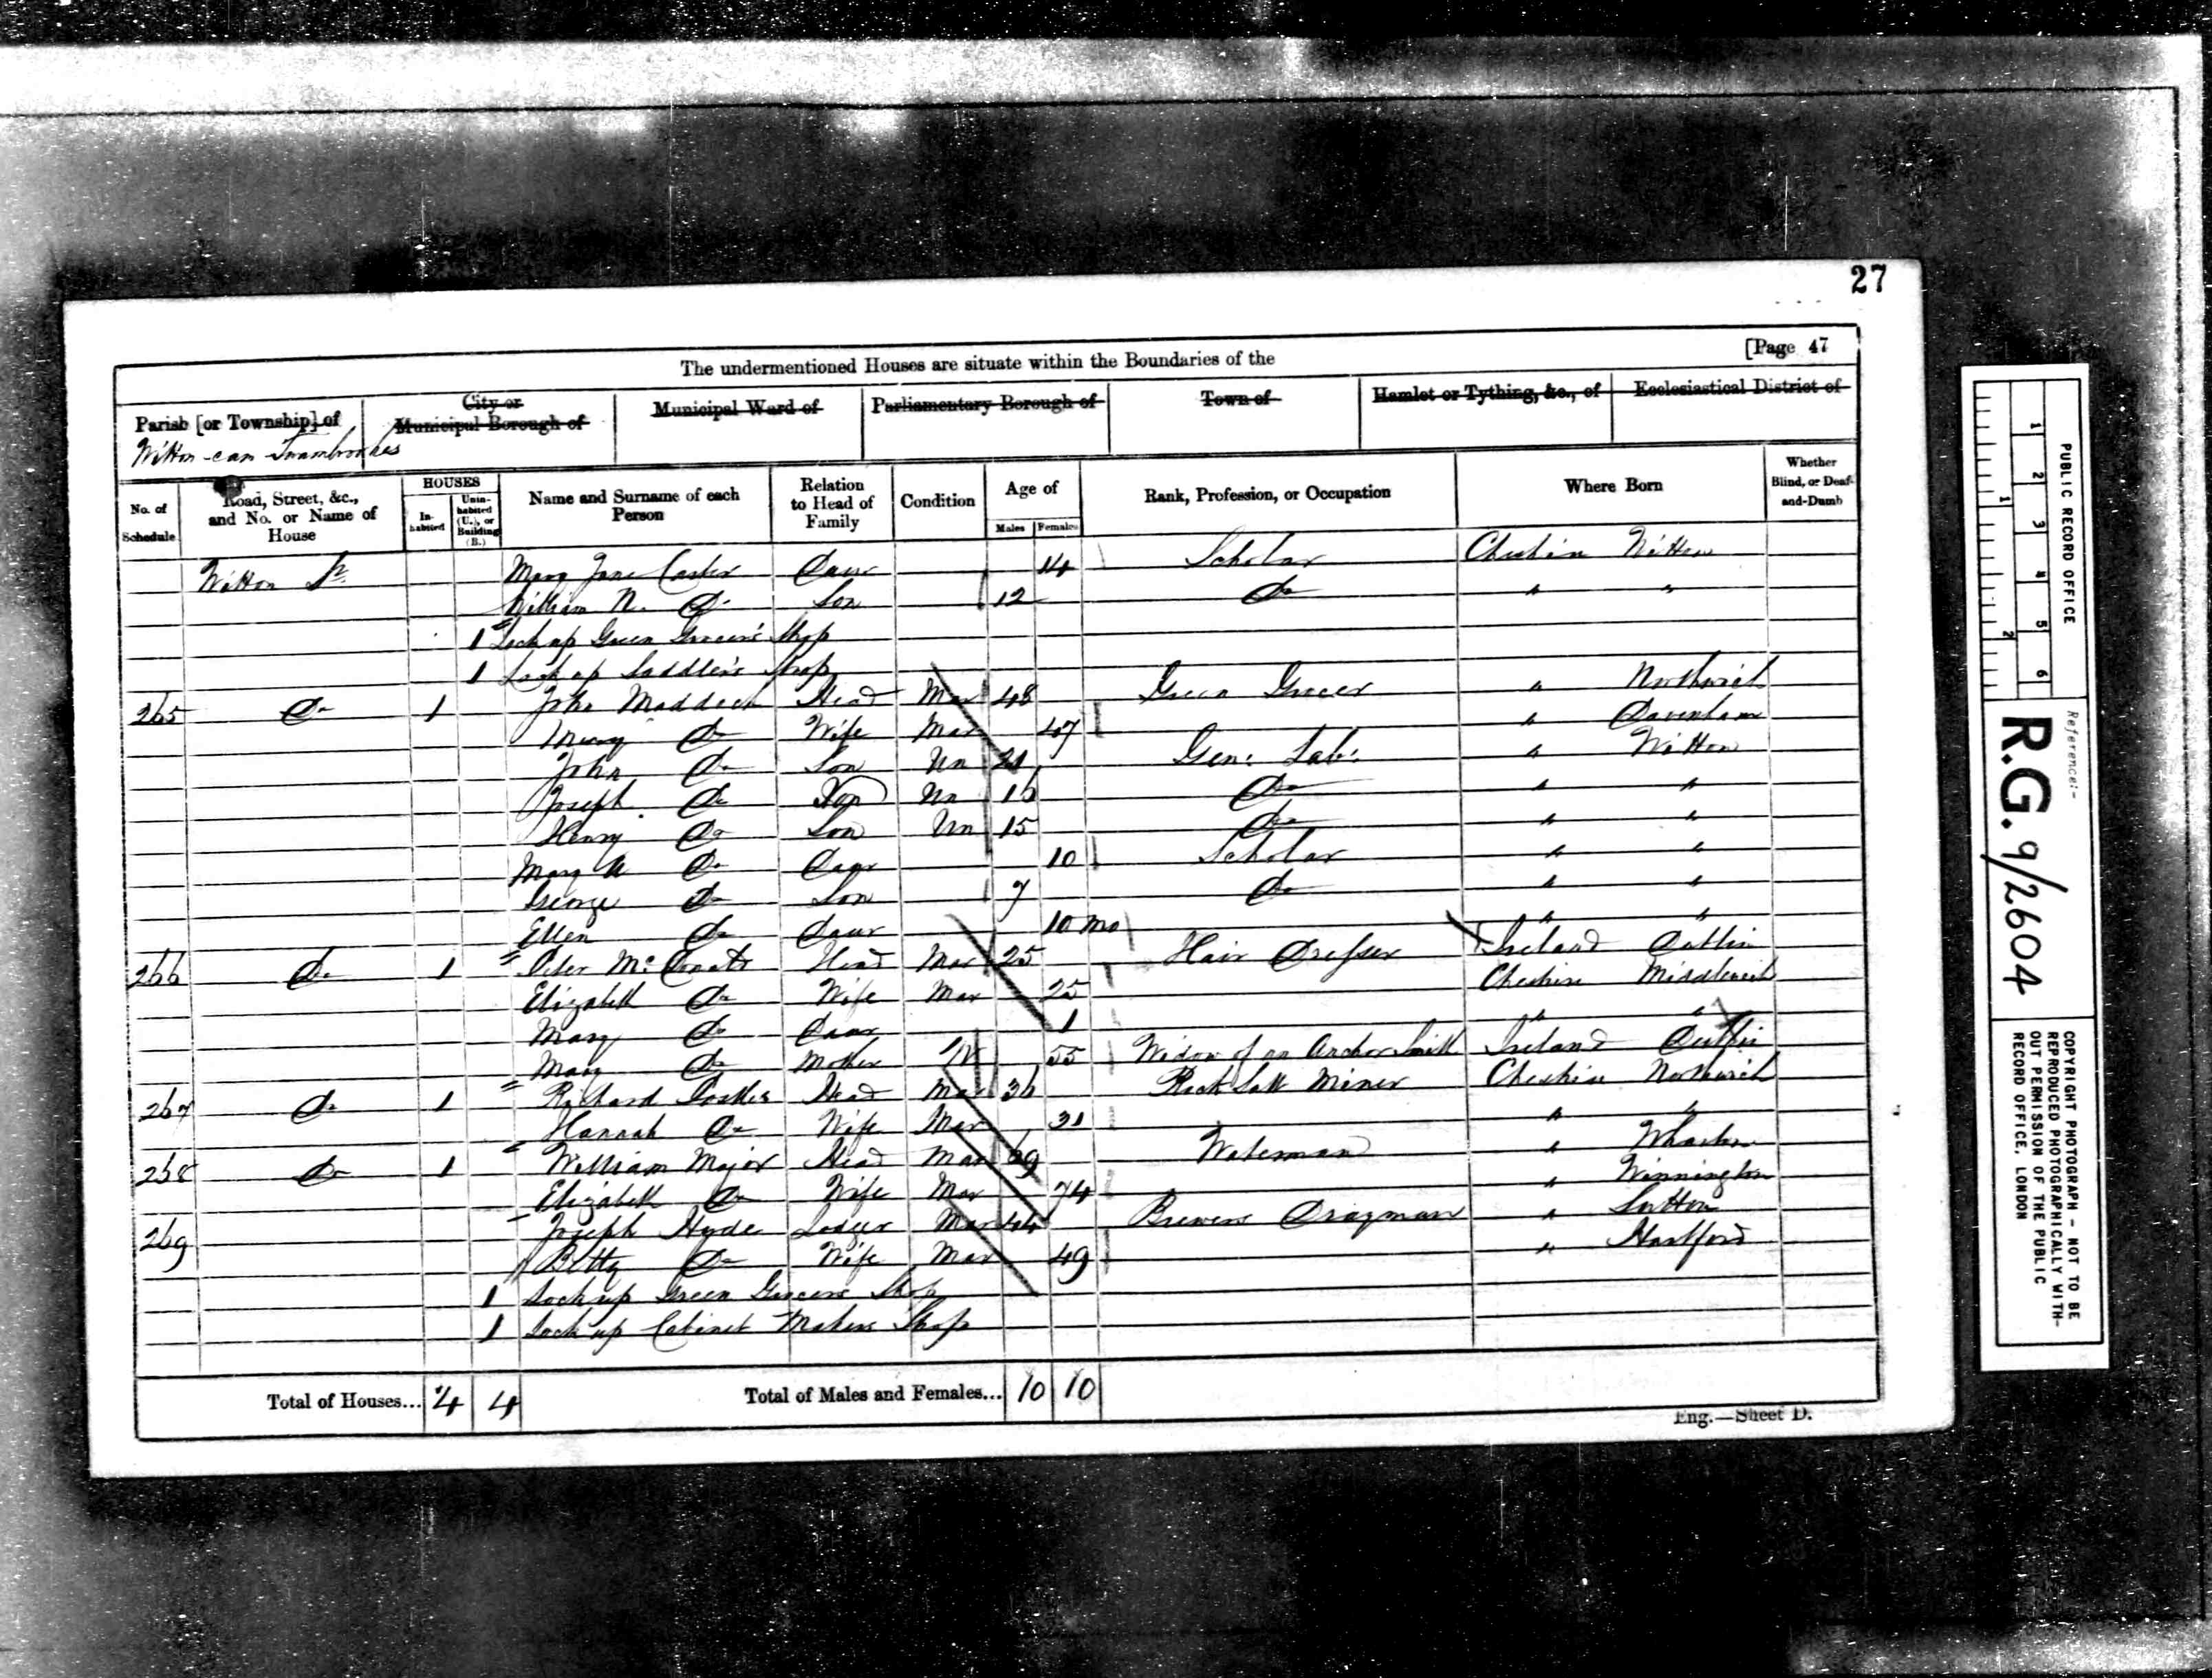 27
[Page 47
The undermentioned Houses are situate within the Boundaries of the
Parish [or Township] of
City or Municipal Borough of
Municipal Ward of
Parliamentary Borough of
Town of
Hamlet or Tything, &c., of
Ecclesiastical District of
Witton cum Twambrookes
No. of Schedule
Road, Street, &c., and No. or Name of House
HOUSES
In-habited
Unin-habited (U.), or Building (B.)
Name and Surname of each Person
Relation to Head of Family
Condition
Age of
Males
Females
Rank, Profession, or Occupation
Where Born
Whether Blind, or Deaf-and-Dumb
Witton St Mary Jane Daur 14 Scholar Cheshire Witton
William N. Do Son 12 Do " "
1 Lock up Green Grocer's Shop
1 Lock up Saddler's Shop
265 Do 1 John Maddock Head Mar 48 Green Grocer " Northwich
Mary Do Wife Mar 47 " Davenham
John Do Son Un 21 Gen: Lab: " Witton
Joseph Do Son Un 16 Do " "
Henry Do Son Un 15 Do " "
Mary A Do Daur 10 Scholar " "
George Do Son 7 Do " "
Ellen Do Daur 10 mo " "
266 Do 1 Peter Head Mar 25 Hair Dresser Ireland Dublin
Elizabeth Do Wife Mar 25 Cheshire Middlewich
Mary Do Daur 1 " "
Mary Do Mother W 55 Widow of an Anchor Smith Ireland Dublin
267 Do 1 Richard Head Mar 36 Rock Salt Miner Cheshire Northwich
Hannah Do Wife Mar 31 " "
268 Do 1 William Major Head Mar 69 Waterman " Wharton
Elizabeth Do Wife Mar 74 " Winnington
269 Joseph Hyde Lodger Mar 44 Brewers Drayman " Sutton
Betty Do Wife Mar 49 " Hartford
1 Lock up Green Grocers Shop
1 Lock up Cabinet Makers Shop
Total of Houses... 4 4 Total of Males and Females... 10 10
Eng.—Sheet D.
PUBLIC RECORD OFFICE
1 2 3 4 5 6
1 2
Reference:-
R.G. 9/2604
COPYRIGHT PHOTOGRAPH - NOT TO BE
REPRODUCED PHOTOGRAPHICALLY WITH-
OUT PERMISSION OF THE PUBLIC
RECORD OFFICE, LONDON